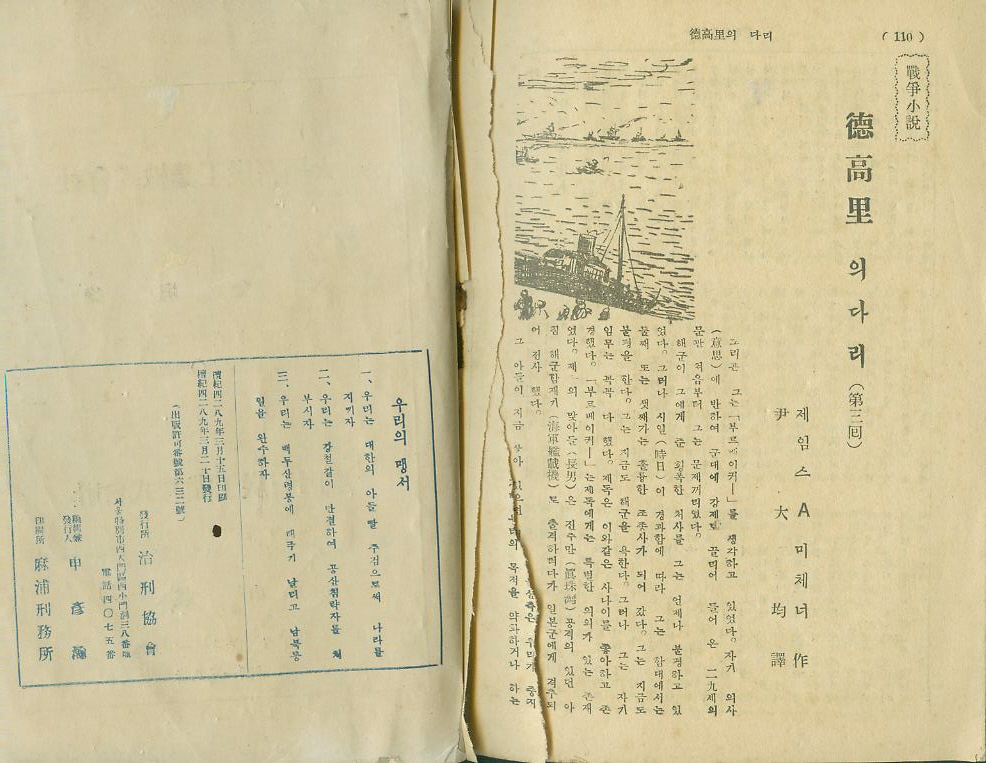 ( 110 )
德高里의 다리
戰爭小說
德高里의 다리 (第三回)
제임스 A 미체너 作
尹大均 譯
그리곤 그는「부르베이커ー」를 생각하고 있었다. 자기 의사
(意思)에 반하여 군대에 강제로 끌리어 들어 온 二九세의
문관 처음부터 그는 문제꺼리였다.
해군이 그에게 준 횡폭한 처사를 그는 언제나 불평하고 있
었다. 그러나 시일(時日)이 경과함에 따라 그는 함대에서는
둘째 또는 셋째가는 훌륭한 조종사가 되어 갔다. 그는 지금도
불평을 한다. 그는 지금도 해군을 욕한다. 그러나 그는 자기
임무는 꼭꼭 다 했다. 제독은 이와같은 사나이를 좋아하고 존
경했다. 「부르베이커ー」는 제독에게는 특별한 의의가 있는 존재
였다. 제 의 맞아들(長男)은 진주만(眞珠灣)공격의 있던 아
침 해군함재기(海軍艦載機)로 출격하려다가 일본군에게 격추되
어 전사 했다.
그 아들이 지금 살아 있으면
의 목적을 약화하거나 하는
우리의 맹서
一、우리는 대한의 아들 딸 주검으로써 나라를
지키자
二、우리는 강철같이 단결하여 공산침략자를 쳐
부시자
三、우리는 백두산령봉에 태극기 날리고 남북통
일을 완수하자
檀紀四二八九年三月十五日印刷
檀紀四二八九年三月二十日發行
(出版許可番號第六三二號)
發行所 治刑協會
서울特別市西大門區西小門洞三八番地
電話④〇七五番
編輯兼發行人 申彦瀚
印刷所 麻浦刑務所